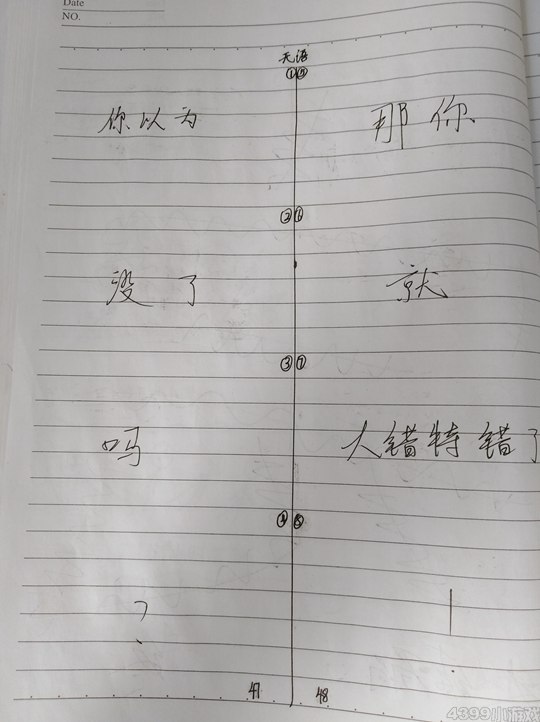 Date
NO.
无语
①⑤
你以为
那你
②①
没了
就
③⑦
吗
大错特错了
④⑧
？
！
47
48
4399小游戏